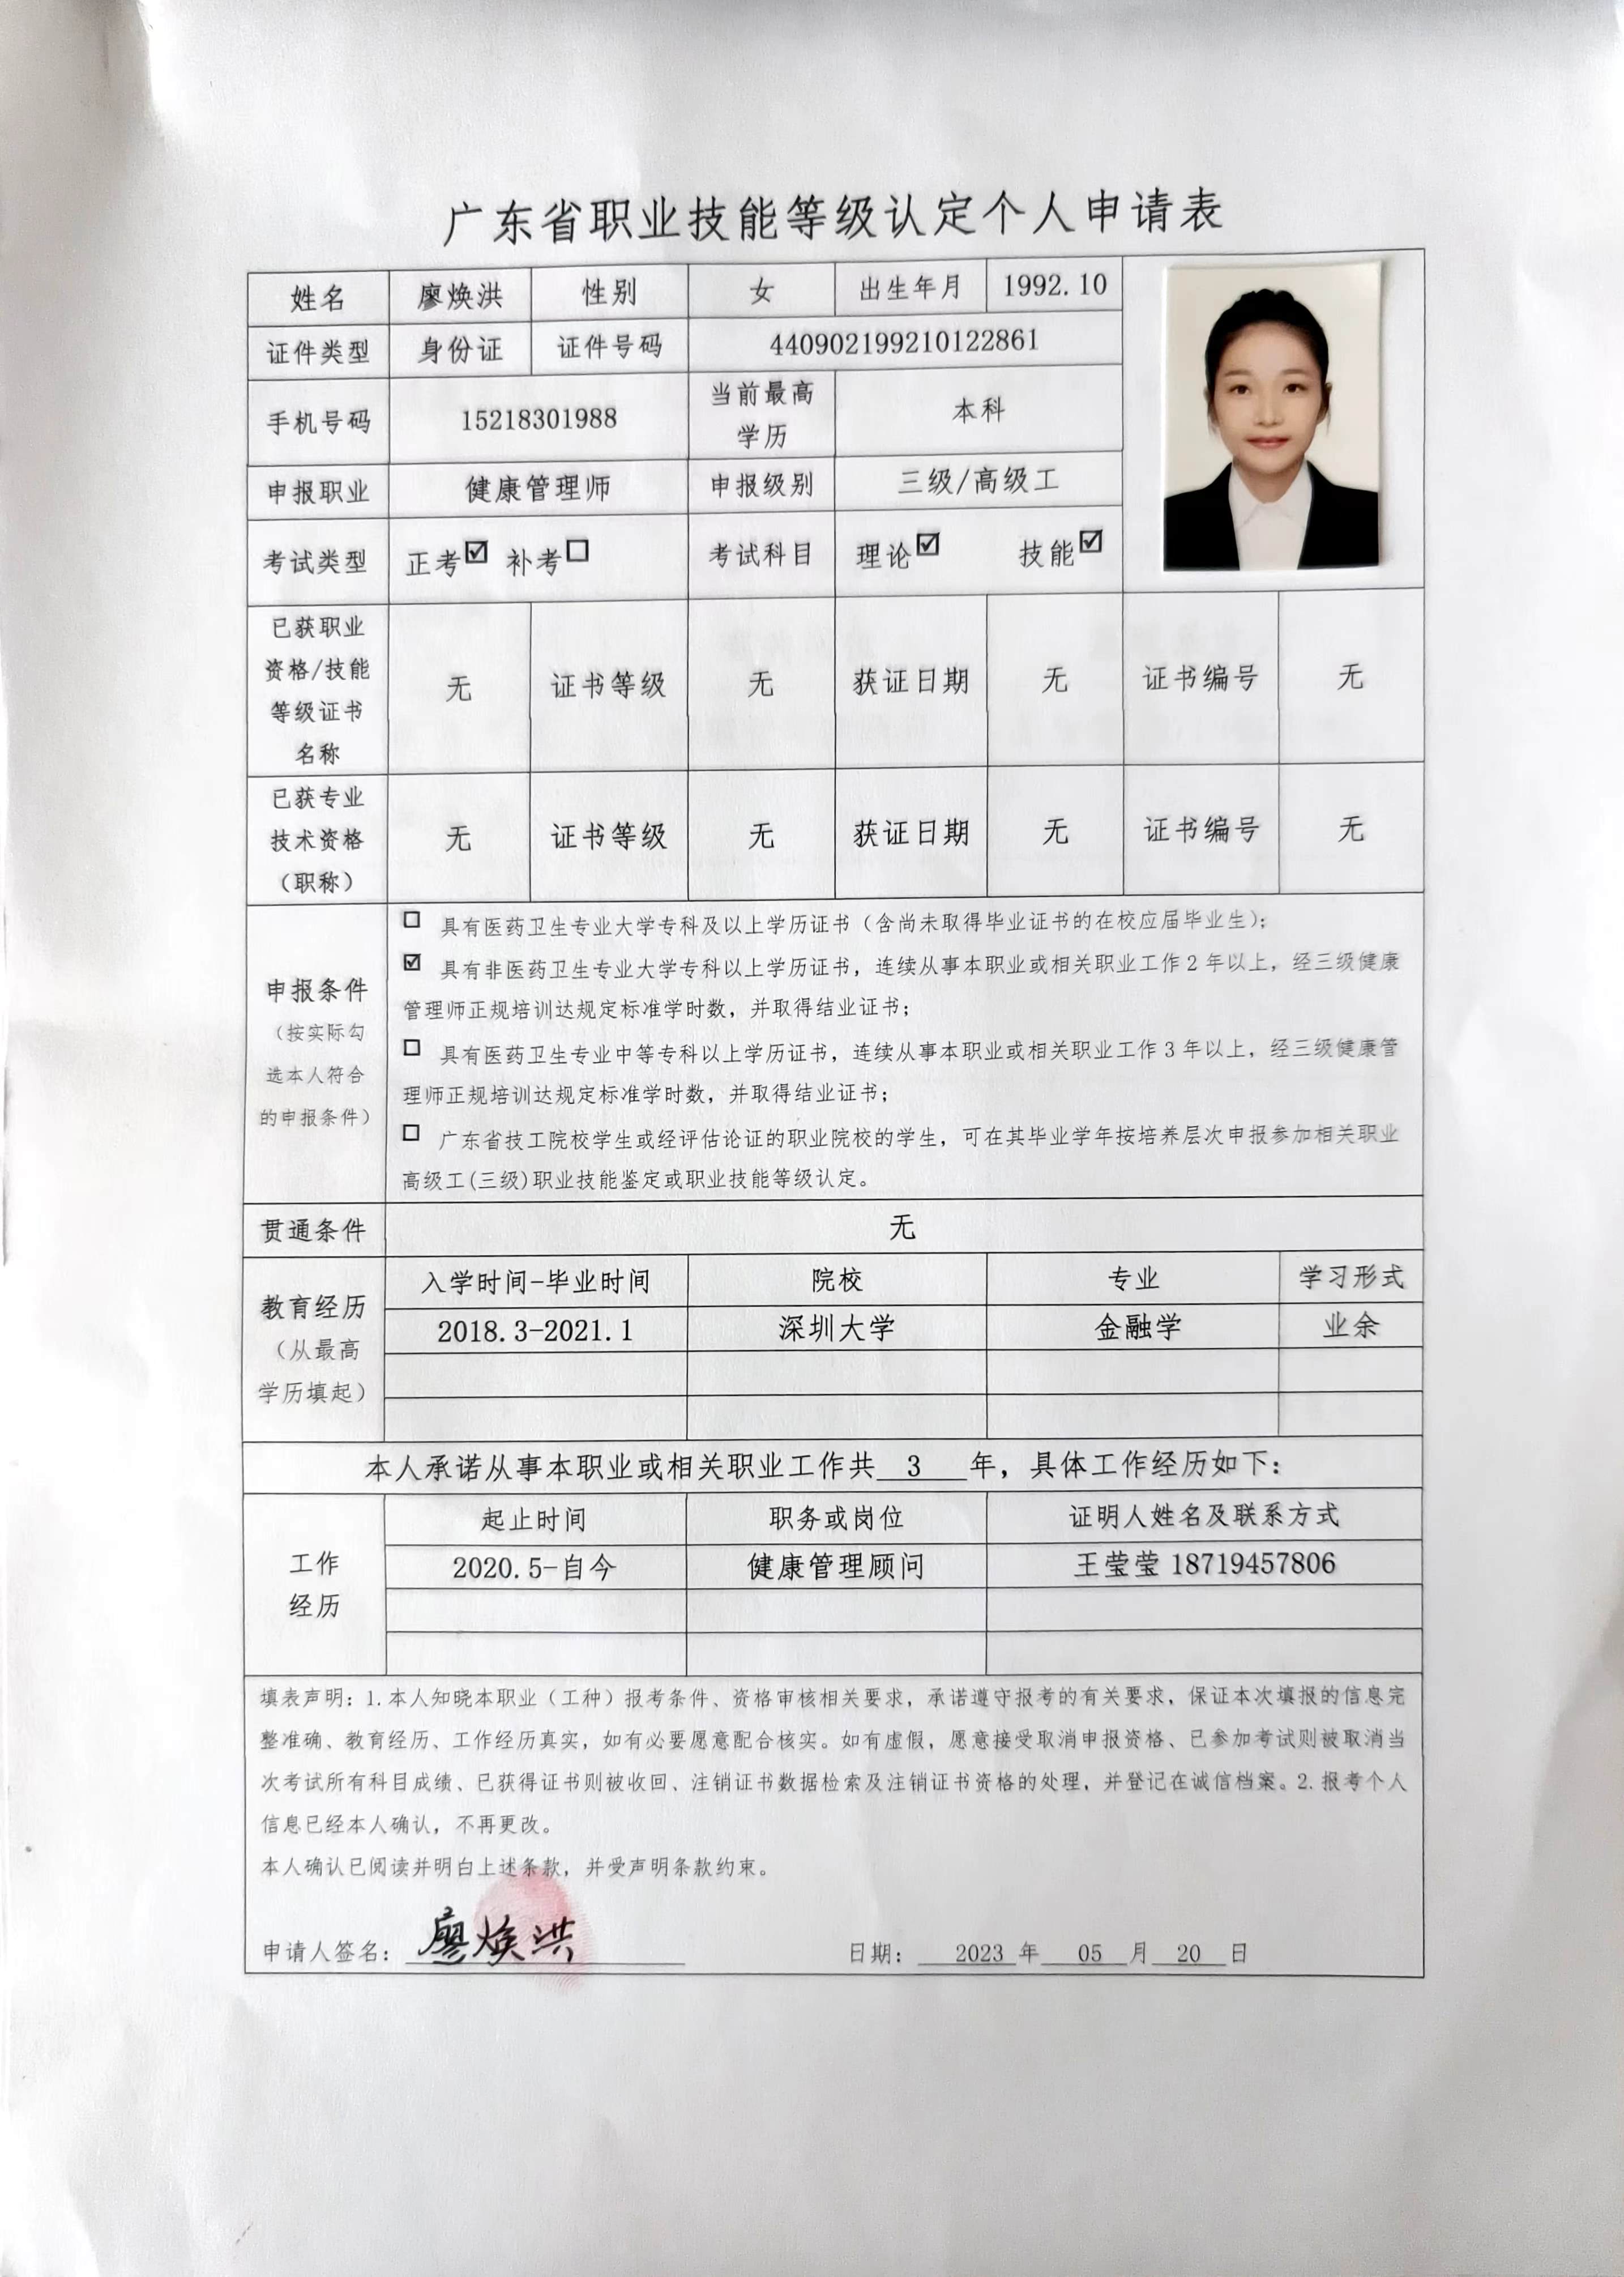 广东省职业技能等级认定个人申请表
姓名 廖焕洪 性别 女 出生年月 1992.10
证件类型 身份证 证件号码 440902199210122861
手机号码 15218301988 当前最高学历 本科
申报职业 健康管理师 申报级别 三级/高级工
考试类型 正考☑ 补考☐ 考试科目 理论☑ 技能☑
已获职业
资格/技能
等级证书
名称
无 证书等级 无 获证日期 无 证书编号 无
已获专业
技术资格
（职称）
无 证书等级 无 获证日期 无 证书编号 无
申报条件
（按实际勾
选本人符合
的申报条件）
☐ 具有医药卫生专业大学专科及以上学历证书（含尚未取得毕业证书的在校应届毕业生）；
☑ 具有非医药卫生专业大学专科以上学历证书，连续从事本职业或相关职业工作2年以上，经三级健康
管理师正规培训达规定标准学时数，并取得结业证书；
☐ 具有医药卫生专业中等专科以上学历证书，连续从事本职业或相关职业工作3年以上，经三级健康管
理师正规培训达规定标准学时数，并取得结业证书；
☐ 广东省技工院校学生或经评估论证的职业院校的学生，可在其毕业学年按培养层次申报参加相关职业
高级工(三级)职业技能鉴定或职业技能等级认定。
贯通条件 无
教育经历
（从最高
学历填起）
入学时间-毕业时间 院校 专业 学习形式
2018.3-2021.1 深圳大学 金融学 业余
本人承诺从事本职业或相关职业工作共 3 年，具体工作经历如下：
工作
经历
起止时间 职务或岗位 证明人姓名及联系方式
2020.5-自今 健康管理顾问 王莹莹 18719457806
填表声明：1.本人知晓本职业（工种）报考条件、资格审核相关要求，承诺遵守报考的有关要求，保证本次填报的信息完
整准确、教育经历、工作经历真实，如有必要愿意配合核实。如有虚假，愿意接受取消申报资格、已参加考试则被取消当
次考试所有科目成绩、已获得证书则被收回、注销证书数据检索及注销证书资格的处理，并登记在诚信档案。2.报考个人
信息已经本人确认，不再更改。
本人确认已阅读并明白上述条款，并受声明条款约束。
申请人签名： 廖焕洪 日期： 2023 年 05 月 20 日